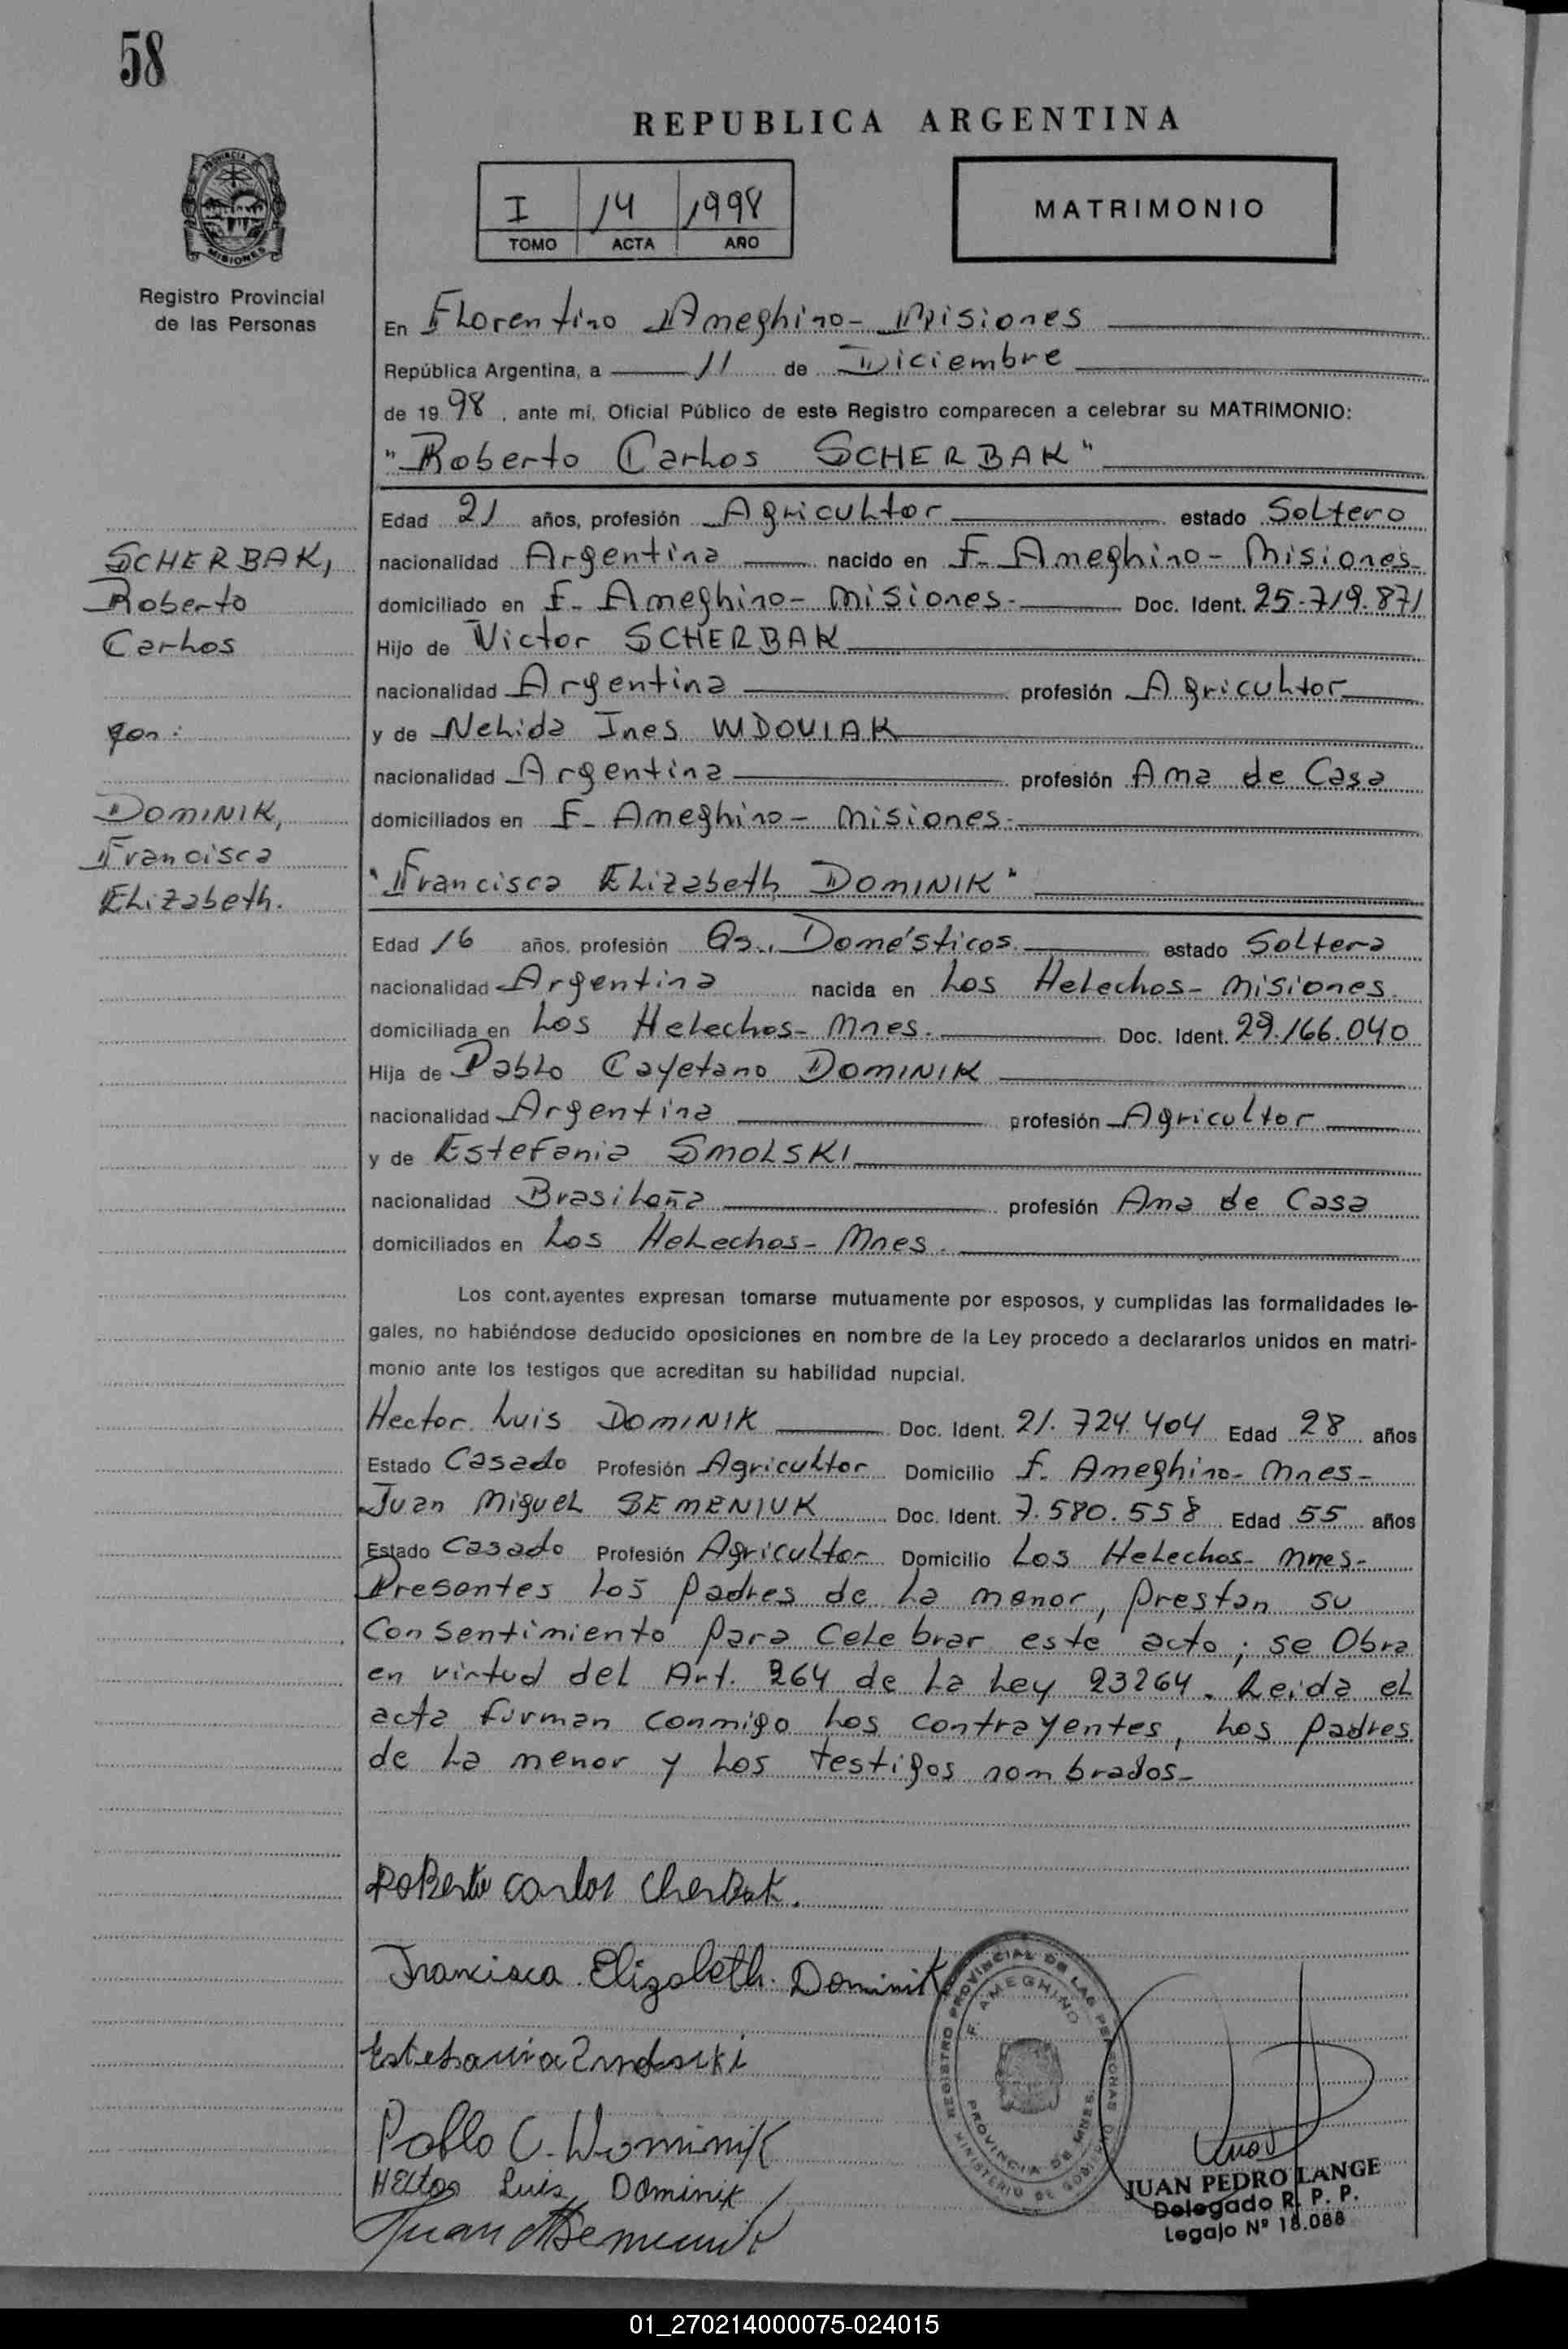 58
REPUBLICA ARGENTINA
PROVINCIA DE
MISIONES
Registro Provincial
de las Personas
I 14 1998
TOMO ACTA AÑO
MATRIMONIO
En Florentino Ameghino- Misiones
República Argentina, a 11 de Diciembre
de 1998, ante mí, Oficial Público de este Registro comparecen a celebrar su MATRIMONIO:
"Roberto Carlos SCHERBAK"
Edad 21 años, profesión Agricultor estado Soltero
nacionalidad Argentina nacido en F. Ameghino- Misiones-
domiciliado en F. Ameghino- Misiones- Doc. Ident. 25.719.871
Hijo de Victor SCHERBAK
nacionalidad Argentina profesión Agricultor
y de Nelida Ines WDOVIAK
nacionalidad Argentina profesión Ama de Casa
domiciliados en F- Ameghino- Misiones-
"Francisca Elizabeth DOMINIK"
Edad 16 años, profesión Qs. Domésticos estado Soltera
nacionalidad Argentina nacida en Los Helechos- Misiones
domiciliada en Los Helechos- Mnes. Doc. Ident. 29.166.040
Hija de Pablo Cayetano DOMINIK
nacionalidad Argentina profesión Agricultor
y de Estefania SMOLSKI
nacionalidad Brasileña profesión Ama de Casa
domiciliados en Los Helechos- Mnes.
SCHERBAK,
Roberto
Carlos
con:
DOMINIK,
Francisca
Elizabeth.
Los cont.ayentes expresan tomarse mutuamente por esposos, y cumplidas las formalidades le-
gales, no habiéndose deducido oposiciones en nombre de la Ley procedo a declararlos unidos en matri-
monio ante los testigos que acreditan su habilidad nupcial.
Hector Luis DOMINIK Doc. Ident. 21.724.404 Edad 28 años
Estado Casado Profesión Agricultor Domicilio F. Ameghino- Mnes-
Juan Miguel SEMENIUK Doc. Ident. 7.580.558 Edad 55 años
Estado Casado Profesión Agricultor Domicilio Los Helechos- Mnes-
Presentes los padres de la menor, prestan su
Consentimiento para Celebrar este acto; se Obra
en virtud del Art. 264 de la Ley 23264. Leida el
acta firman conmigo los contrayentes, los padres
de la menor y los testigos nombrados-
Roberto Carlos Cherbak.
Francisca Elizabeth. Dominik
Pablo C. Dominik
Hector Luis Dominik
REGISTRO PROVINCIAL DE LAS PERSONAS
F. AMEGHINO
PROVINCIA DE MNES.
MINISTERIO DE GOBIERNO
JUAN PEDRO LANGE
Delegado R. P. P.
Legajo Nº 18.088
01_270214000075-024015